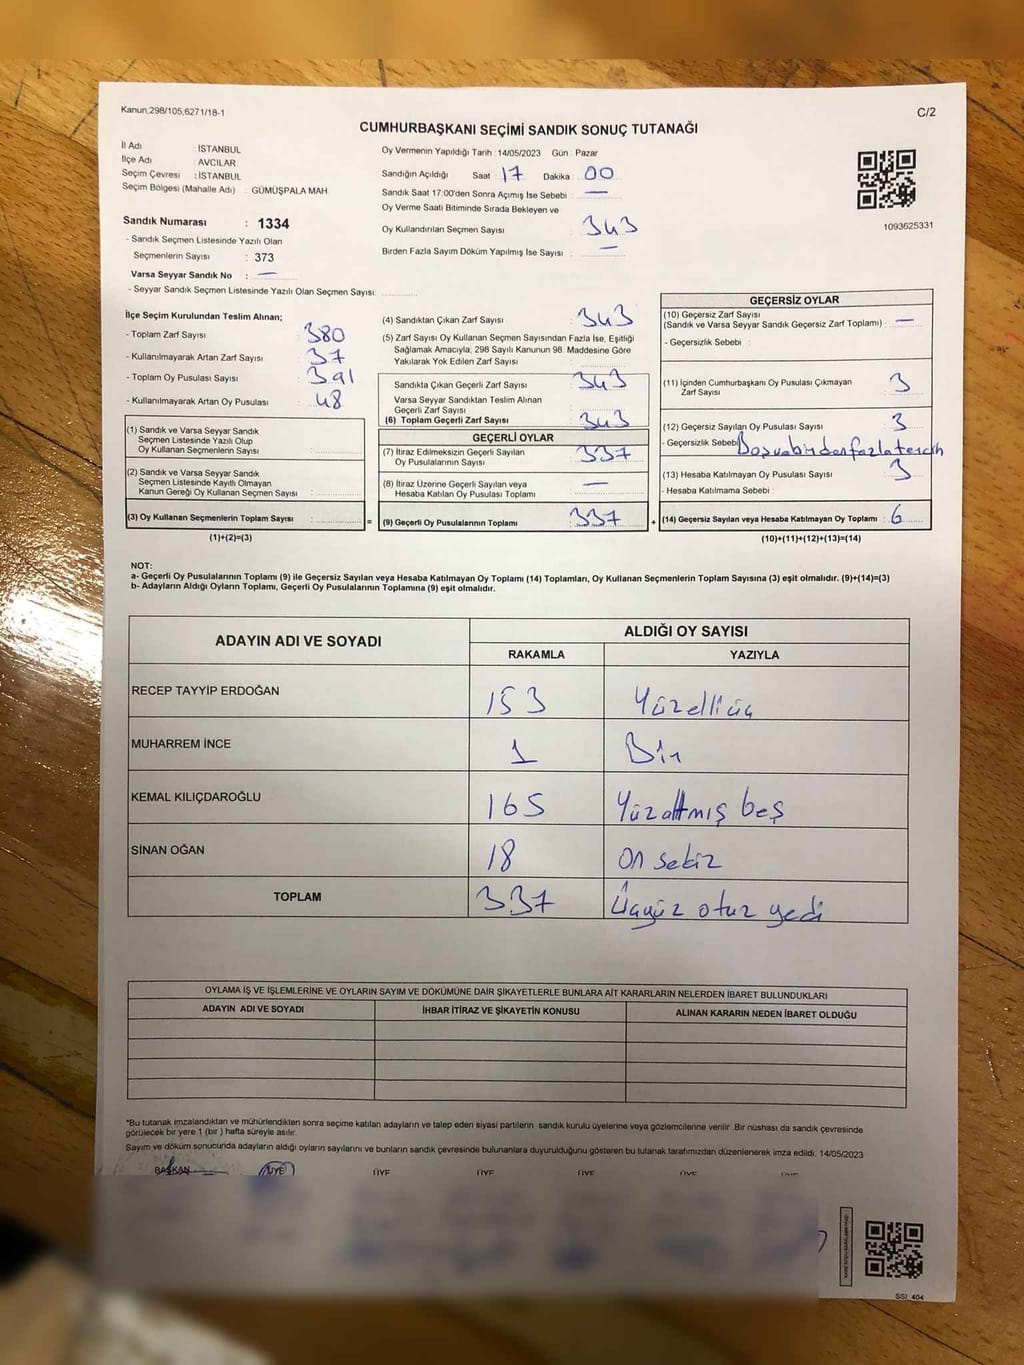 Kanun,298/105,6271/18-1
C/2
CUMHURBAŞKANI SEÇİMİ SANDIK SONUÇ TUTANAĞI
İl Adı : İSTANBUL
İlçe Adı : AVCILAR
Seçim Çevresi : İSTANBUL
Seçim Bölgesi (Mahalle Adı) : GÜMÜŞPALA MAH.
Sandık Numarası : 1334
- Sandık Seçmen Listesinde Yazılı Olan
Seçmenlerin Sayısı : 373
Varsa Seyyar Sandık No : —
- Seyyar Sandık Seçmen Listesinde Yazılı Olan Seçmen Sayısı:
Oy Vermenin Yapıldığı Tarih : 14/05/2023 Gün : Pazar
Sandığın Açıldığı Saat 17 Dakika : 00
Sandık Saat 17:00'den Sonra Açımış İse Sebebi : —
Oy Verme Saati Bitiminde Sırada Bekleyen ve
Oy Kullandırılan Seçmen Sayısı : 343
Birden Fazla Sayım Döküm Yapılmış İse Sayısı : —
1093625331
İlçe Seçim Kurulundan Teslim Alınan;
- Toplam Zarf Sayısı : 380
- Kullanılmayarak Artan Zarf Sayısı : 37
- Toplam Oy Pusulası Sayısı : 391
- Kullanılmayarak Artan Oy Pusulası : 48
(1) Sandık ve Varsa Seyyar Sandık
Seçmen Listesinde Yazılı Olup
Oy Kullanan Seçmenlerin Sayısı :
(2) Sandık ve Varsa Seyyar Sandık
Seçmen Listesinde Kayıtlı Olmayan
Kanun Gereği Oy Kullanan Seçmen Sayısı :
(3) Oy Kullanan Seçmenlerin Toplam Sayısı :
(1)+(2)=(3)
(4) Sandıktan Çıkan Zarf Sayısı : 343
(5) Zarf Sayısı Oy Kullanan Seçmen Sayısından Fazla İse, Eşitliği
Sağlamak Amacıyla; 298 Sayılı Kanunun 98. Maddesine Göre
Yakılarak Yok Edilen Zarf Sayısı :
Sandıkta Çıkan Geçerli Zarf Sayısı : 343
Varsa Seyyar Sandıktan Teslim Alınan
Geçerli Zarf Sayısı :
(6) Toplam Geçerli Zarf Sayısı : 343
GEÇERLİ OYLAR
(7) İtiraz Edilmeksizin Geçerli Sayılan
Oy Pusulalarının Sayısı : 337
(8) İtiraz Üzerine Geçerli Sayılan veya
Hesaba Katılan Oy Pusulası Toplamı : —
= (9) Geçerli Oy Pusulalarının Toplamı : 337
GEÇERSİZ OYLAR
(10) Geçersiz Zarf Sayısı
(Sandık ve Varsa Seyyar Sandık Geçersiz Zarf Toplamı) : —
- Geçersizlik Sebebi :
(11) İçinden Cumhurbaşkanı Oy Pusulası Çıkmayan
Zarf Sayısı : 3
(12) Geçersiz Sayılan Oy Pusulası Sayısı : 3
- Geçersizlik Sebebi Boş ve birden fazla tercih
(13) Hesaba Katılmayan Oy Pusulası Sayısı : 3
- Hesaba Katılmama Sebebi :
+ (14) Geçersiz Sayılan veya Hesaba Katılmayan Oy Toplamı : 6
(10)+(11)+(12)+(13)=(14)
NOT:
a- Geçerli Oy Pusulalarının Toplamı (9) ile Geçersiz Sayılan veya Hesaba Katılmayan Oy Toplamı (14) Toplamları, Oy Kullanan Seçmenlerin Toplam Sayısına (3) eşit olmalıdır. (9)+(14)=(3)
b- Adayların Aldığı Oyların Toplamı, Geçerli Oy Pusulalarının Toplamına (9) eşit olmalıdır.
ADAYIN ADI VE SOYADI
ALDIĞI OY SAYISI
RAKAMLA YAZIYLA
RECEP TAYYİP ERDOĞAN 153 Yüzelliüç
MUHARREM İNCE 1 Bir
KEMAL KILIÇDAROĞLU 165 Yüzaltmış beş
SİNAN OĞAN 18 On sekiz
TOPLAM 337 Üçyüz otuz yedi
OYLAMA İŞ VE İŞLEMLERİNE VE OYLARIN SAYIM VE DÖKÜMÜNE DAİR ŞİKAYETLERLE BUNLARA AİT KARARLARIN NELERDEN İBARET BULUNDUKLARI
ADAYIN ADI VE SOYADI İHBAR İTİRAZ VE ŞİKAYETİN KONUSU ALINAN KARARIN NEDEN İBARET OLDUĞU
*Bu tutanak imzalandıktan ve mühürlendikten sonra seçime katılan adayların ve talep eden siyasi partilerin sandık kurulu üyelerine veya gözlemcilerine verilir .Bir nüshası da sandık çevresinde
görülecek bir yere 1 (bir ) hafta süreyle asılır.
Sayım ve döküm sonucunda adayların aldığı oyların sayılarını ve bunların sandık çevresinde bulunanlara duyurulduğunu gösteren bu tutanak tarafımızdan düzenlenerek imza edildi. 14/05/2023
BAŞKAN ÜYE ÜYE ÜYE ÜYE ÜYE ÜYE
SSI_404